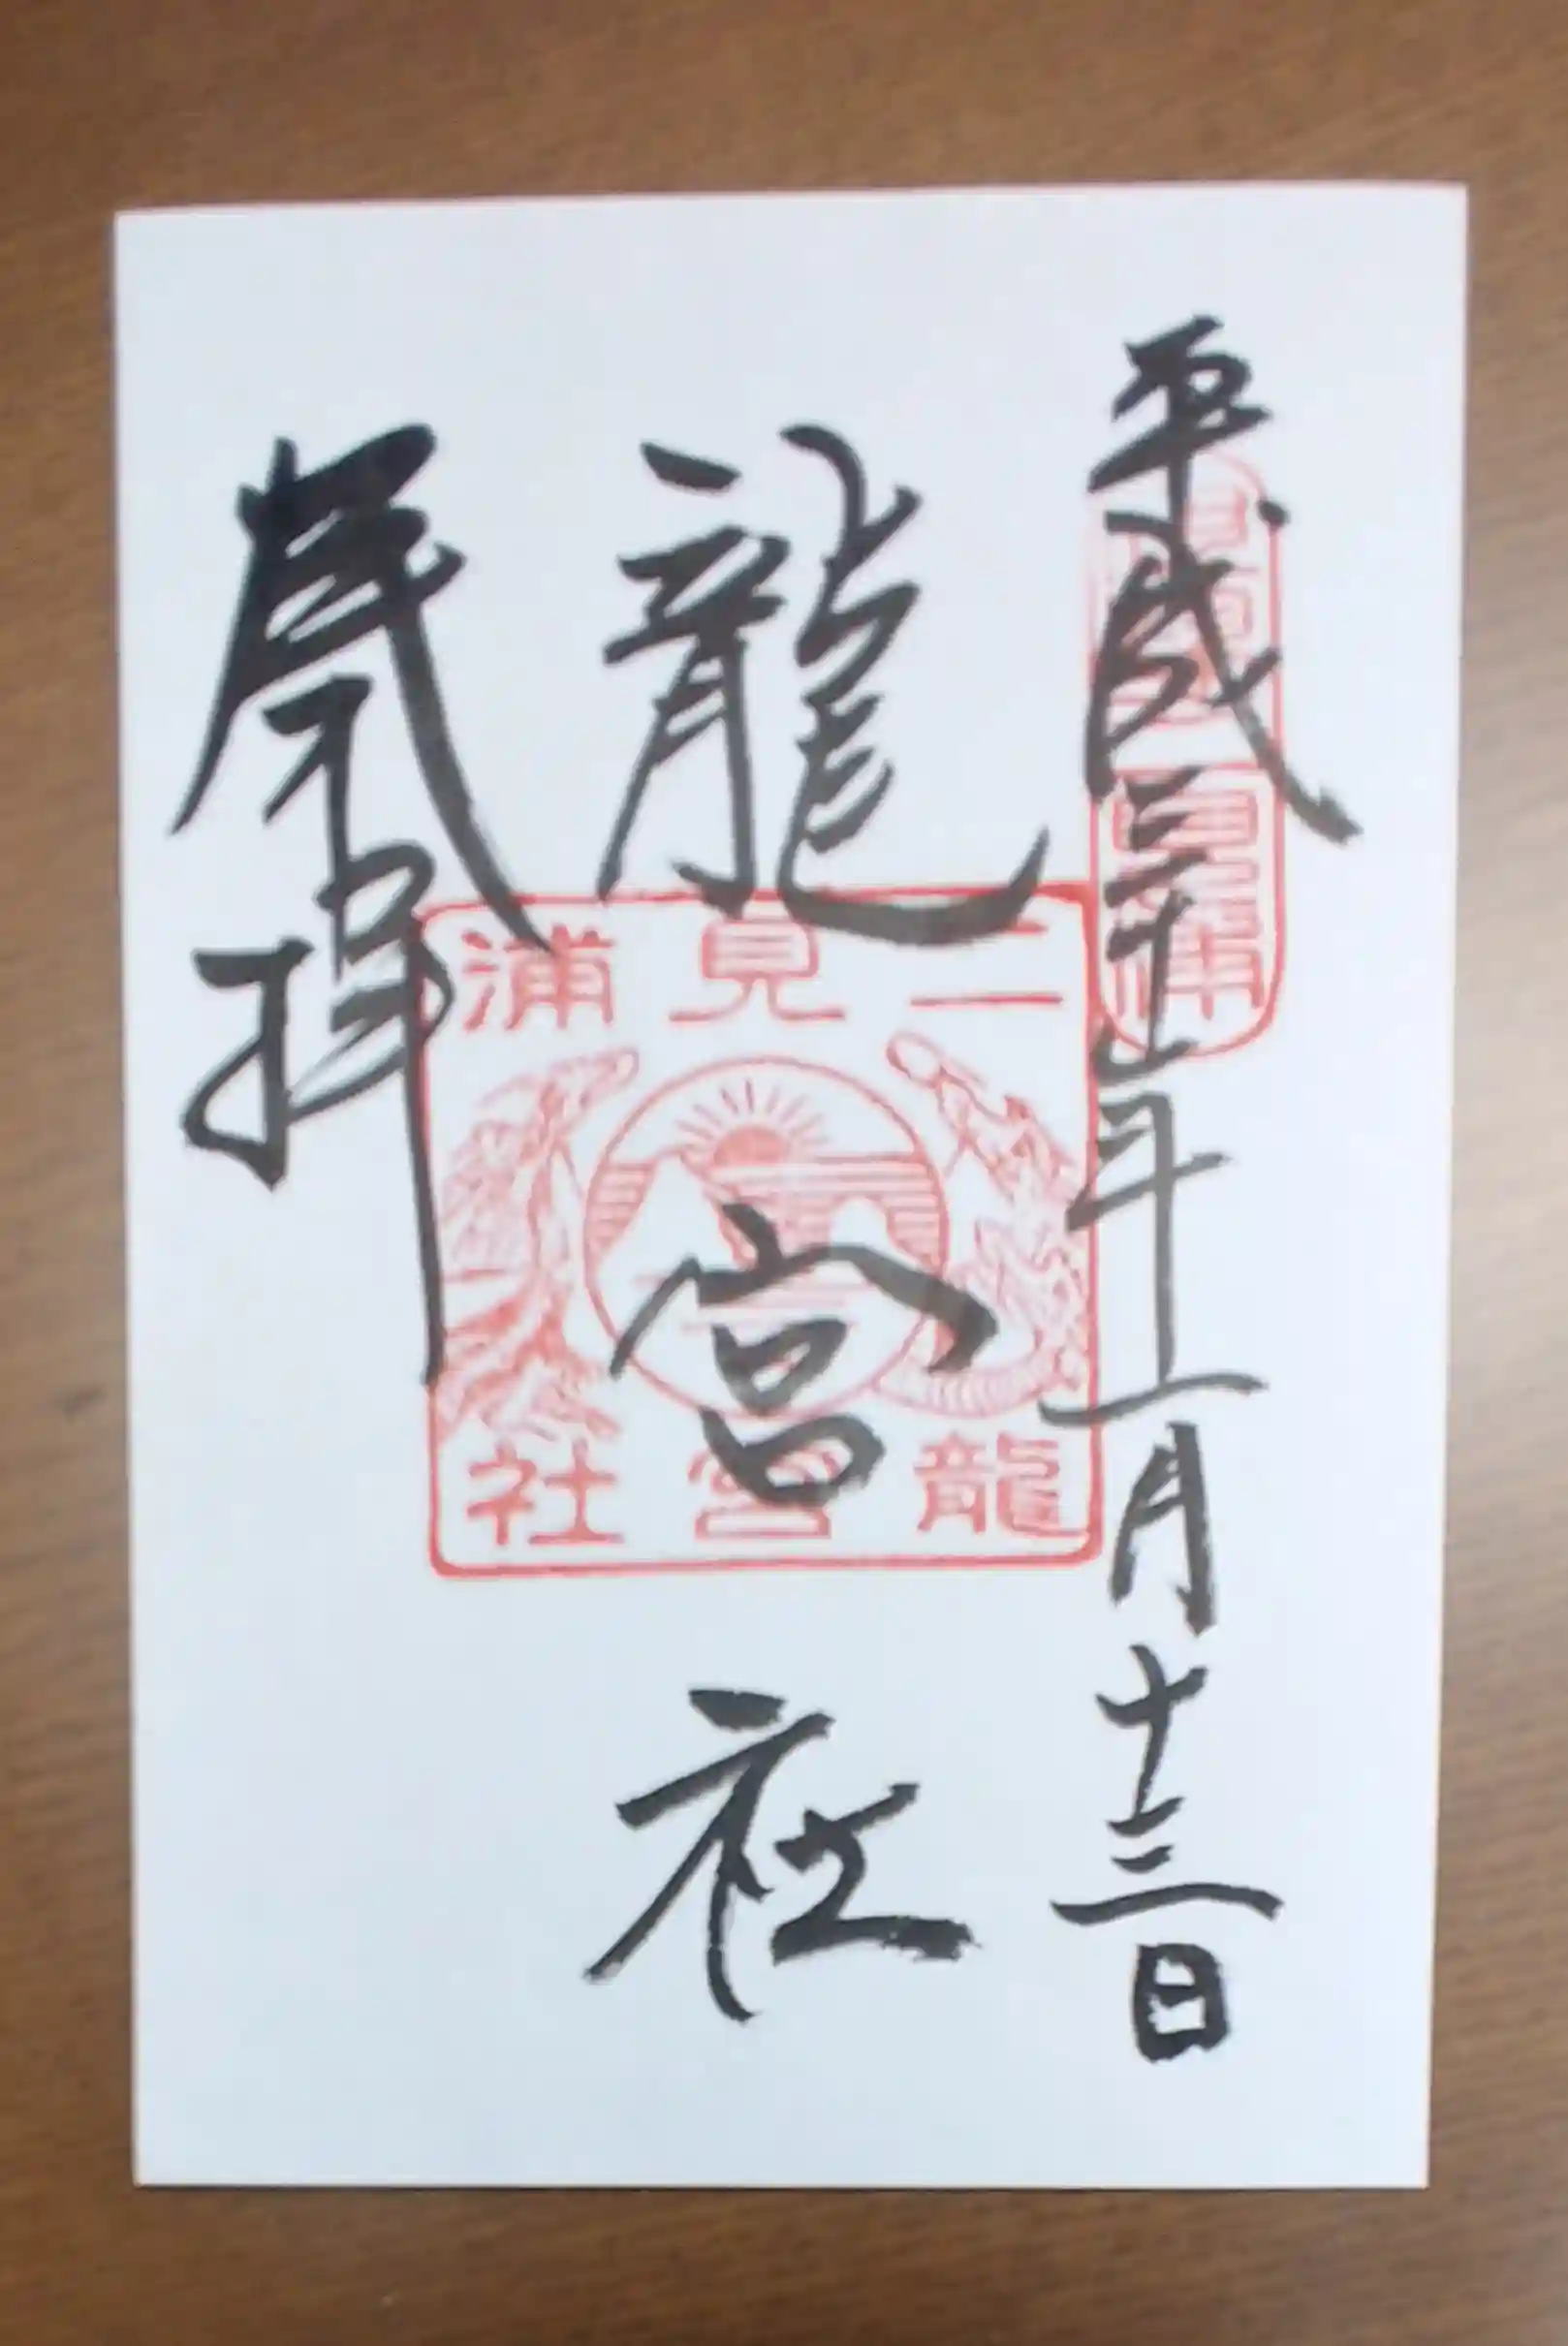 平成三十一年一月十三日
龍宮社
奉拝
二見浦
龍宮社